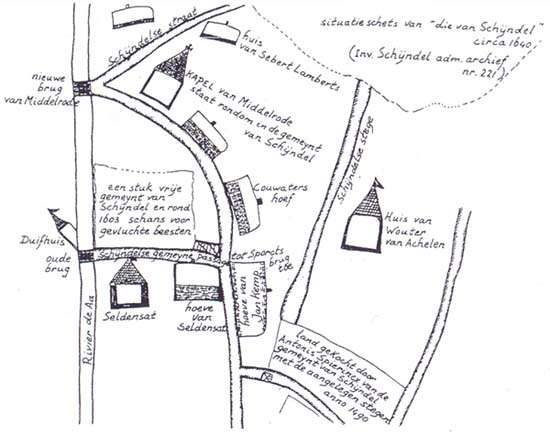 situatieschets van "die van Schijndel"
circa 1640.
(Inv. Schijndel adm. archief
nr. 221)
Schijndelse straat
huis
van Sebert Lamberts
nieuwe
brug
van Middelrode
KAPEL van Middelrode
staat rondom in de gemeynt
van Schijndel
Schijndelse stege
een stuk vrije
gemeynt van
Schijndel en rond
1603 schans voor
gevluchte beesten.
Couwaters
hoef
Huis van
Wouter
van Achelen
Duifhuis
oude
brug
Schijndelse gemeyne passage tot Sparots
brug
toe
Seldensat
hoeve
van
Seldensat
hoeve van
Jan Kemp
Rivier de Aa
land gekocht door
Antonis Spierincx van de
gemeynt van Schijndel
met de aangelegen stegen
anno 1490